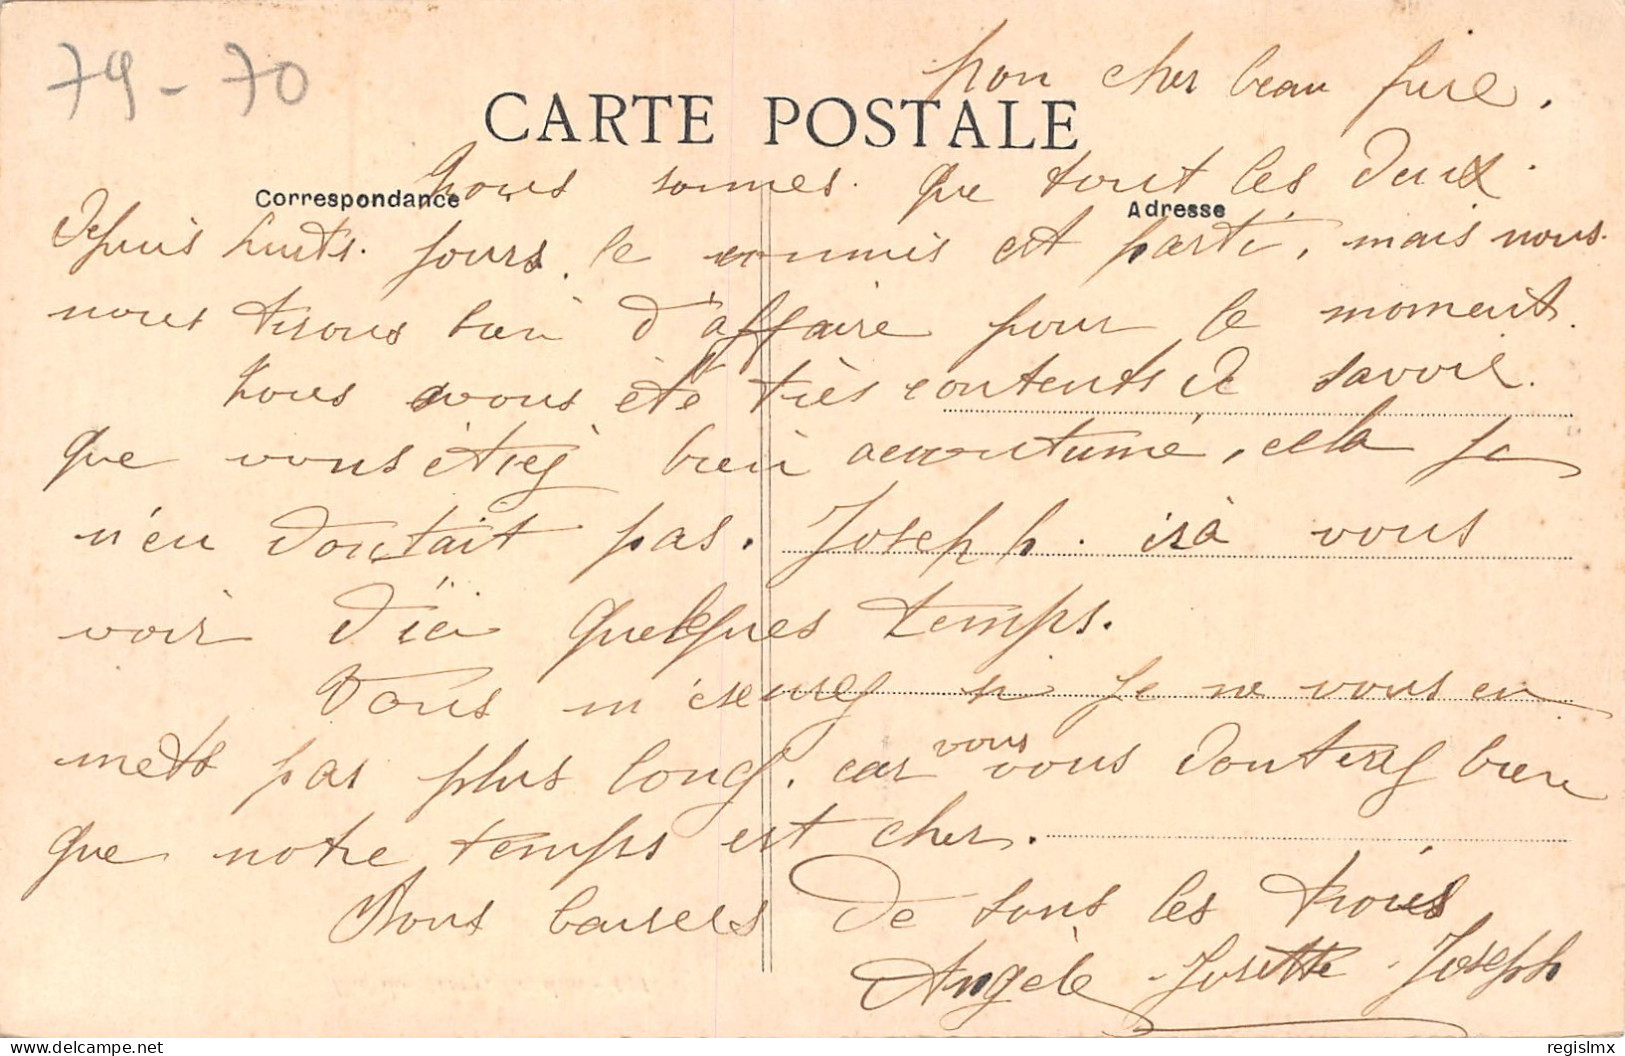 79 - 70
Mon cher beau père.
CARTE POSTALE
Nous sommes. que tout les deux.
Correspondance
Adresse
Depuis huits. jours. le commis est parti, mais nous.
nous tirons bien d'affaire pour le moment.
Nous avons été très contents de savoir.
que vous étiez bien accoutumé, cela je
n'en doutait pas. Joseph. irà vous
voir d'ici quelques temps.
Vous m'éxcuserez si je ne vous en
mets pas plus long. car vous vous douterez bien
que notre temps est cher.
Bons baisers De tous les trois
Angèle - Josette - Joseph
© regislmx